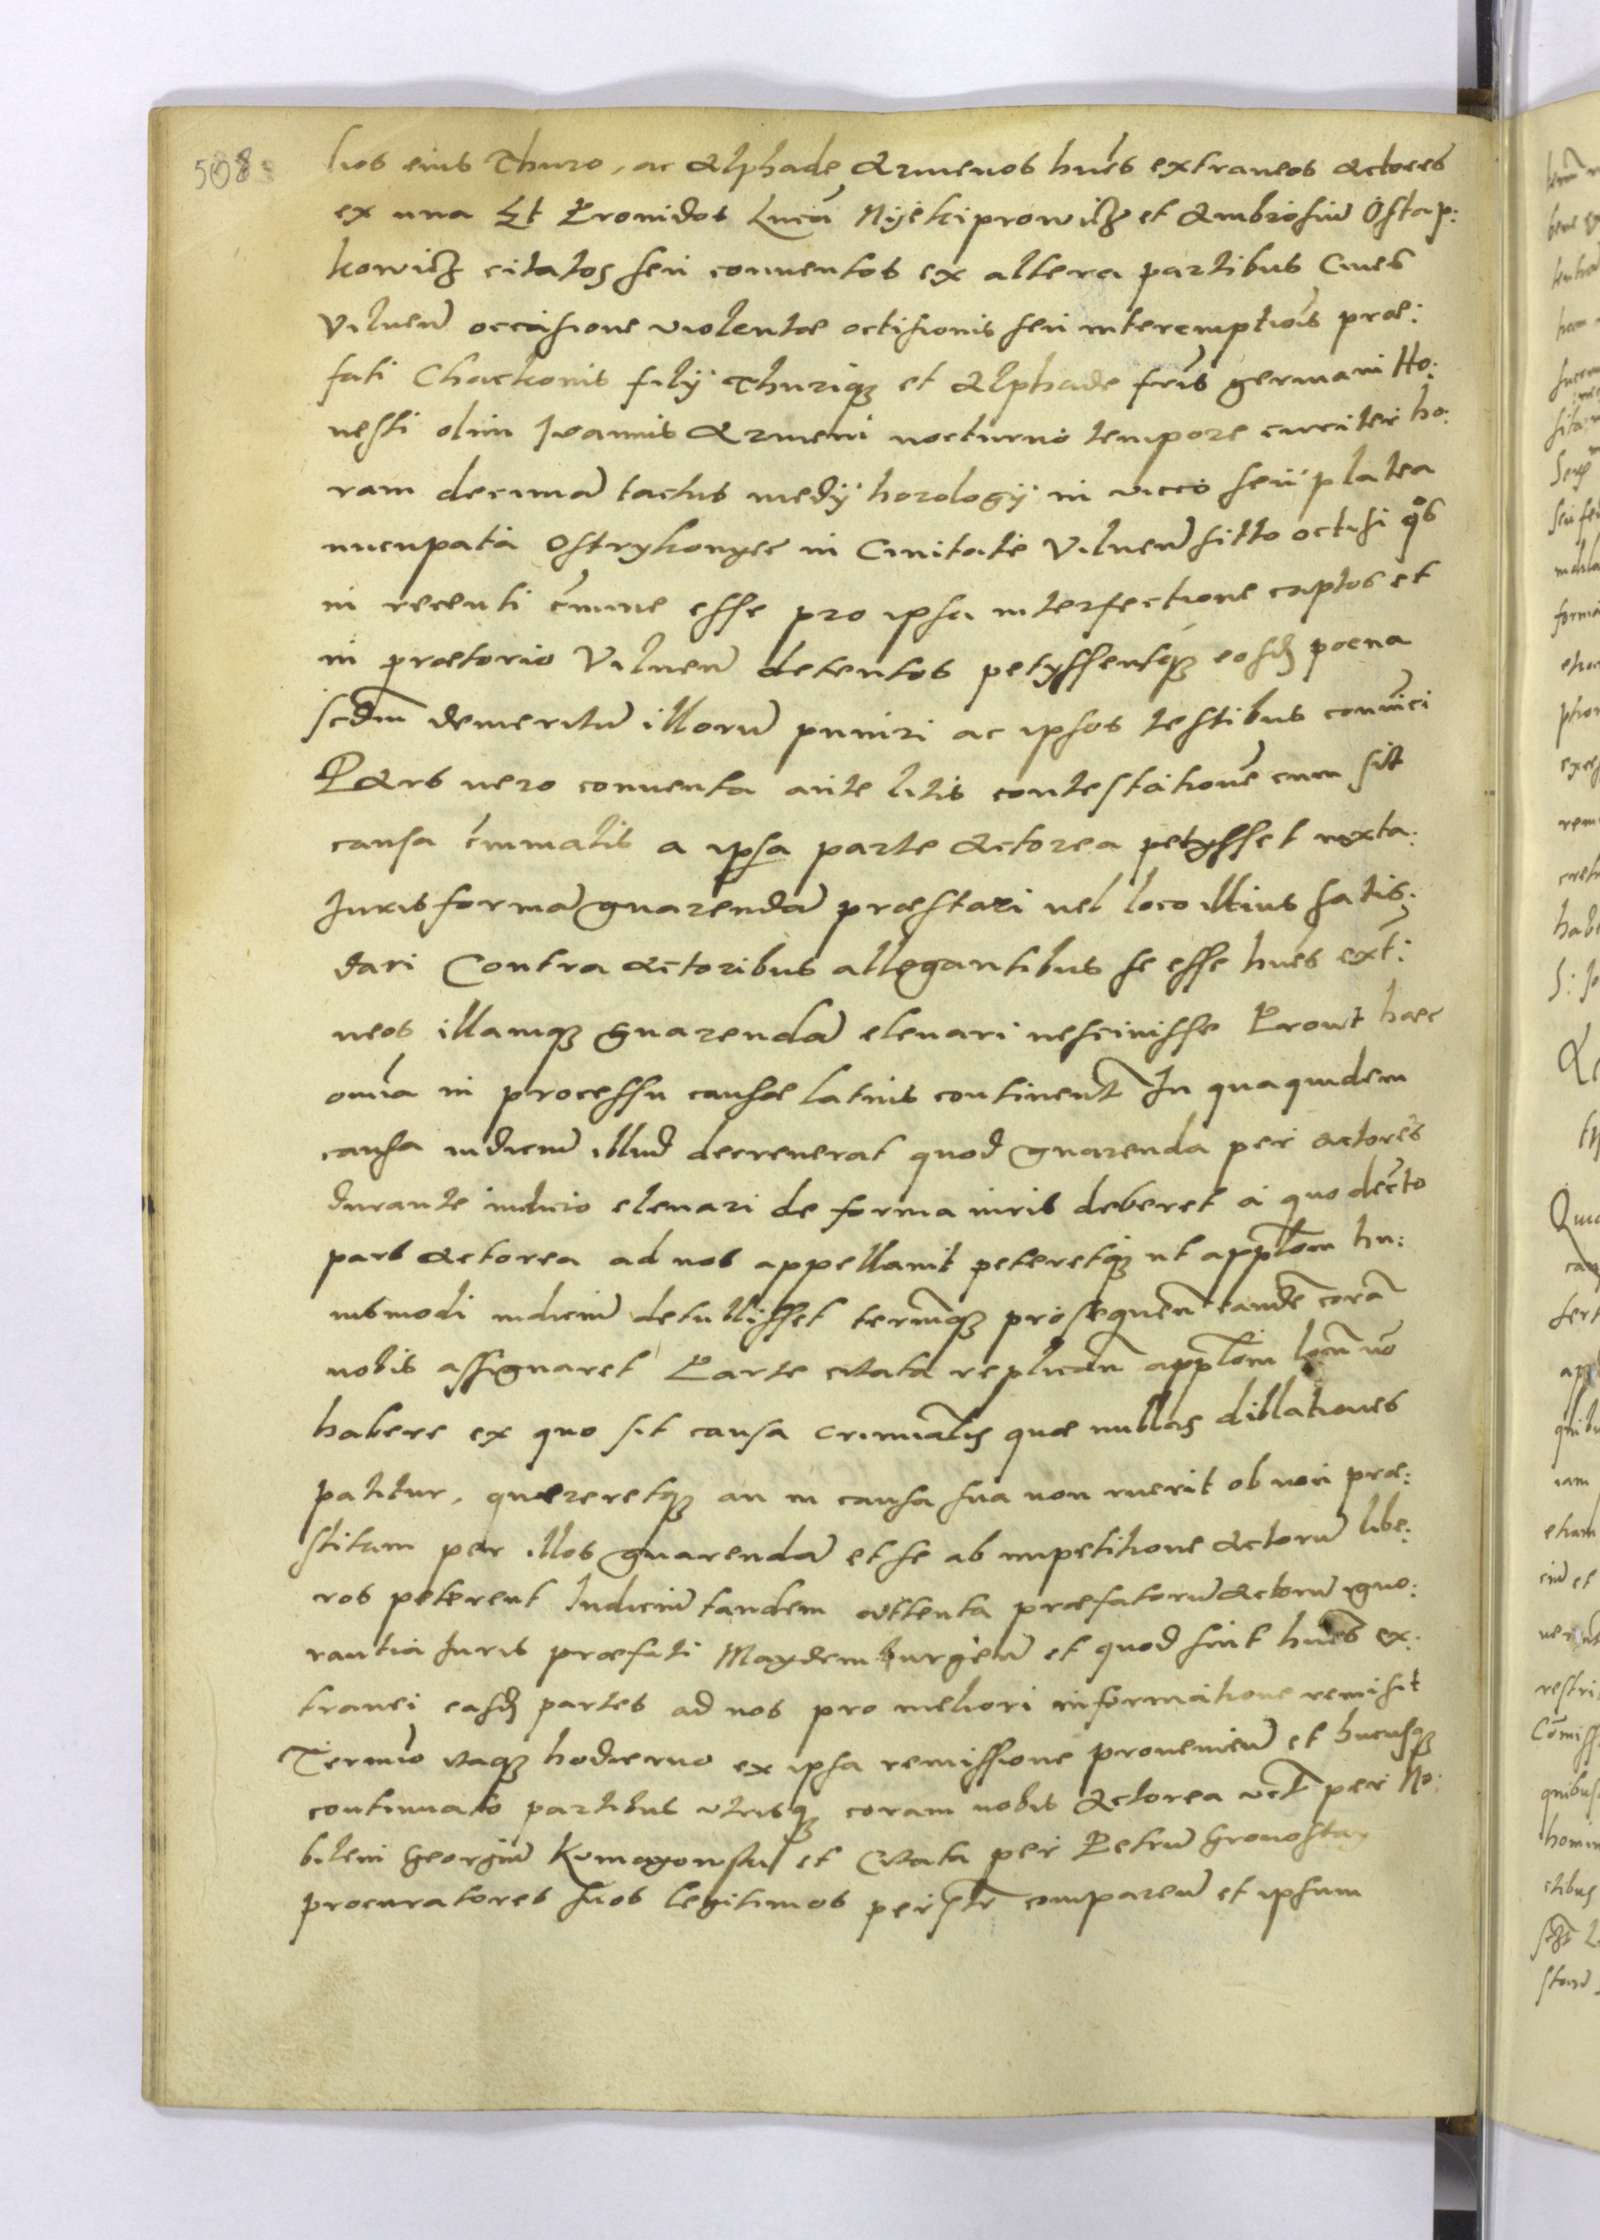 508
lios eius Thuro, ac Alphade Armenos hoies extraneos Actores
ex una Et Pronidos Lucã Nyekiprowicz et Ambrosiũ Ostap:
kowicz citatos seu conuentos ex altera partibus Ciues
Vilneñ occasione violentae occisionis seu interemptiõis prae:
fati Chackonis filij Thuriq3 et Alphade fris germani Ho:
nesti olim Ioannis Armeni nocturno tempore circiter ho:
ram decimã tactus medij horologij in vicco seu platea
nucupata Ostrykonyec in Ciuitate Vilneñ sitto occisi qos
in recenti cĩmine esse pro ipsa interfectione captos et
in praetorio Vilneñ detentos petyssentq3 eosd poena
scdm demeritũ illorũ puniri ac ipsos testibus conuĩci
Pars uero conuenta ante litis contestationẽ cum sit
causa cĩminalis a ipsa parte Actorea petysset iuxta
Iuris formã guarendã praestari uel loco illius satis:
dari Contra Actoribus allegantibus se esse hoies ext:
neos illamq3 guarendã eleuari nesciuisse Prout haec
omĩa in processu causae latius continent In qua quidem
causa iudiciũ illud decreuerat quod guarenda per Actores
durante iudicio eleuari de forma iuris deberet a quo decto
pars Actorea ad nos appellauit peteretq3 ut applõm hu:
iusmodi iudiciũ detullisset termq3 prosequeñ eandẽ corã
nobis assignaret Parte citata replicañ applõm locũ nõ
habere ex quo sit causa criminalis quae nullas dillationes
patitur, quaereretq3 an in causa sua non ruerit ob non prae:
stitam per illos guarendã et se ab impetitione Actorũ libe:
ros peterent Iudiciũ tandem attenta praefatorũ Actorũ igno:
rantia Iuris praefati Maydemburgeñ et quod sint hoies ex:
tranei easd partes ad nos pro meliori informatione remisit
Termĩo itaq3 hodierno ex ipsa remissione proueniẽn et hucusq3
continuato partibus utrisq3 coram nobis Actorea uct per No:
bilem Georgiũ Komayowsky et Citata per Petrũ Gronostay
procuratores suos legitimos perstr compareñ et ipsum